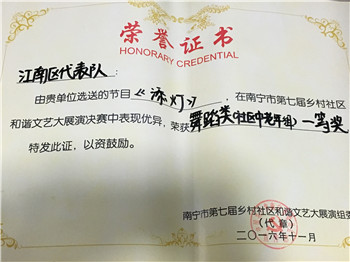 荣誉证书
HONORARY CREDENTIAL
江南区代表队：
由贵单位选送的节目《添灯》，在南宁市第七届乡村社区
和谐文艺大展演决赛中表现优异，荣获舞蹈类(社区中老年组)一等奖
特发此证，以资鼓励。
南宁市第七届乡村社区和谐文艺大展演组委
（代章）
二〇一六年十一月